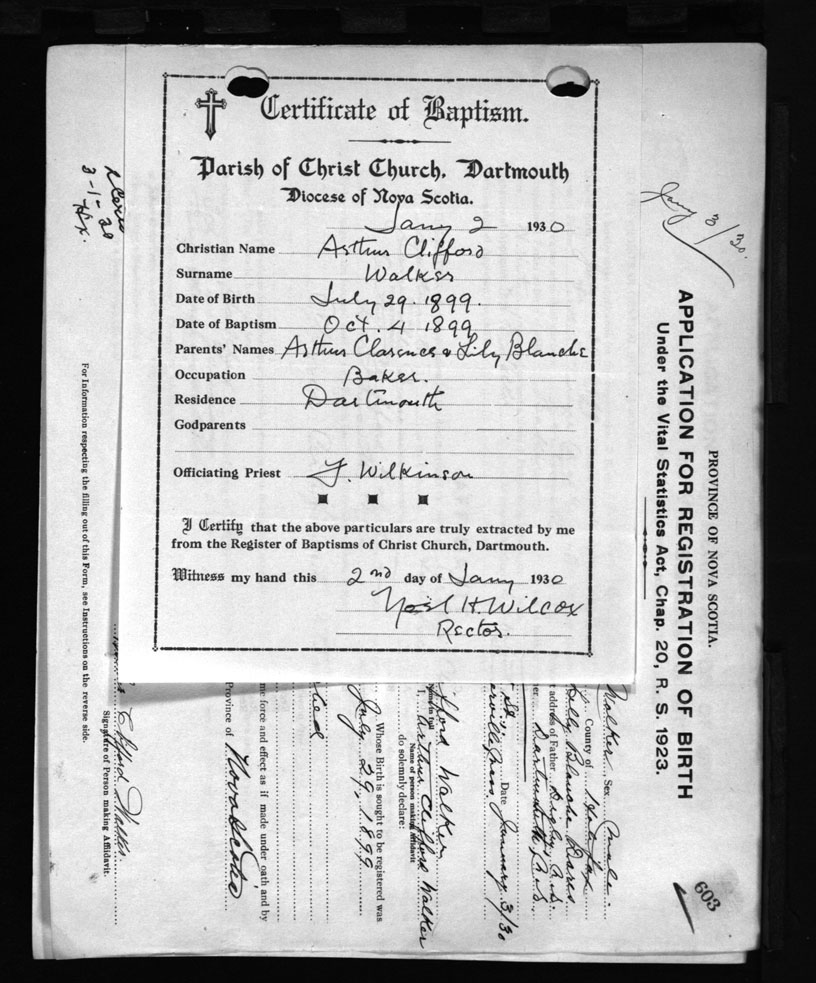 Certificate of Baptism.
Parish of Christ Church, Dartmouth
Diocese of Nova Scotia.
Jany 2 1930
Christian Name Arthur Clifford
Surname Walker
Date of Birth July 29. 1899.
Date of Baptism Oct. 4 1899
Parents' Names Arthur Clarence & Lily Blanche
Occupation Baker.
Residence Dartmouth
Godparents
Officiating Priest F. Wilkinson
I Certify that the above particulars are truly extracted by me
from the Register of Baptisms of Christ Church, Dartmouth.
Witness my hand this 2nd day of Jany 1930
Noel H. Wilcox
Rector.
Jany 3/30.
PROVINCE OF NOVA SCOTIA.
APPLICATION FOR REGISTRATION OF BIRTH
Under the Vital Statistics Act, Chap. 20, R. S. 1923.
603
Walker Sex Male.
County of Halifax
Lily Blanche
address of Father Digby, N.S.
Dartmouth, N.S.
St.,
Date January 3/30
Clifford Walker
I, Arthur Clifford Walker
Name of person making affidavit
do solemnly declare:
Whose Birth is sought to be registered was
July 29, 1899
me force and effect as if made under oath and by
Province of Nova Scotia
Clifford Walker
Signature of Person making Affidavit.
For Information respecting the filling out of this Form, see Instructions on the reverse side.
3-1-30